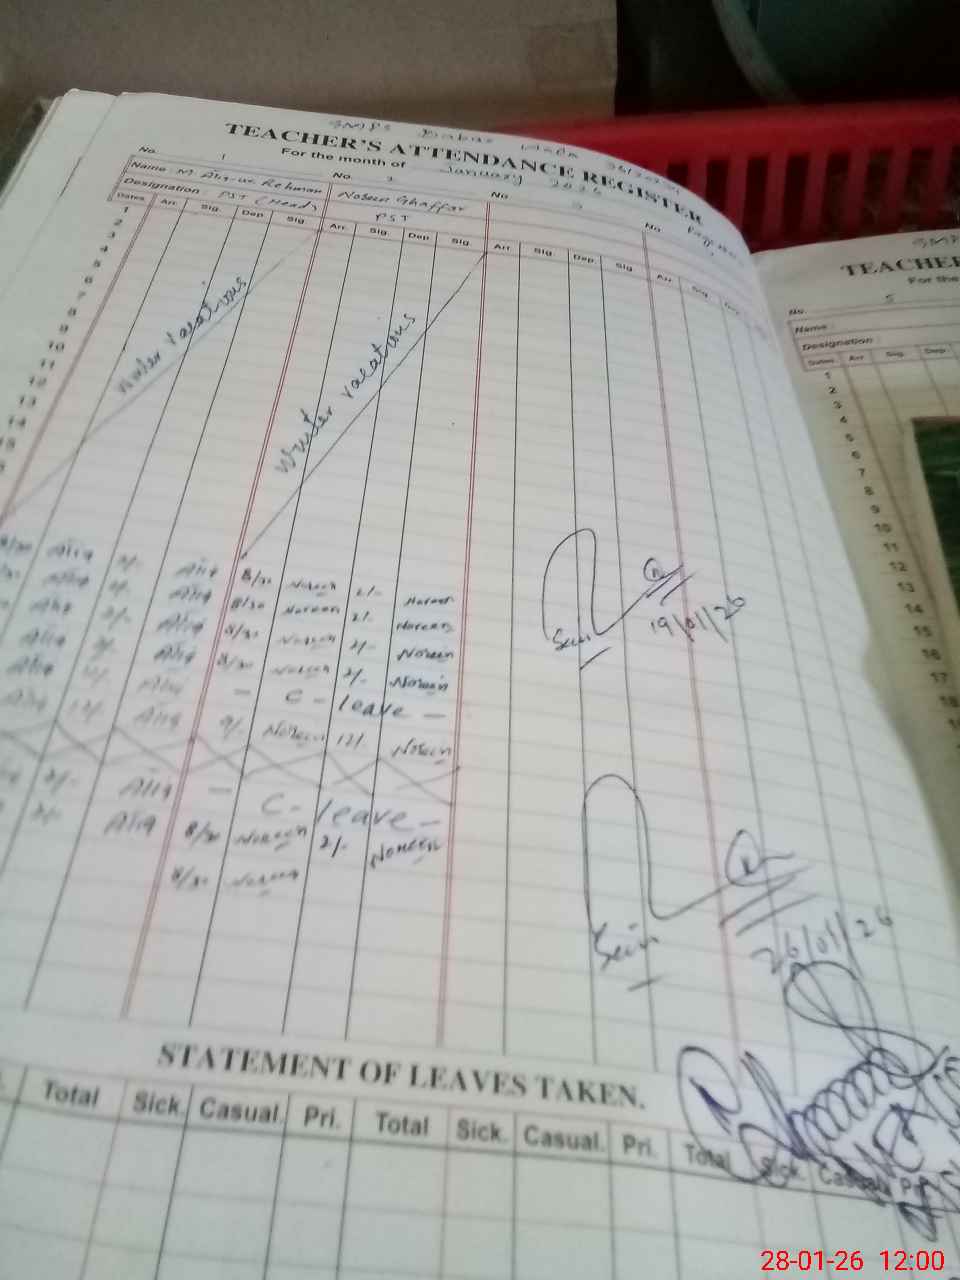 GMPS
TEACHER'S ATTENDANCE REGISTER
For the month of January 2026
No. 1 No. 2 No. 3 No.
Name M Atiq-ur-Rehman Noreen Ghaffar
Designation PST (Head) PST
Dates Arr. Sig. Dep. Sig. Arr. Sig. Dep. Sig. Arr. Sig. Dep. Sig. Arr. Sig.
1
2
3
4
5
6
7
8
9
10
11
12
13
14
15
Winter vacations
Winter vacations
8/30 Atiq 2/- Atiq 8/30 Noreen 2/- Noreen
Atiq 2/- Atiq 8/30 Noreen 2/- Noreen
Atiq 2/- Atiq 8/30 Noreen 2/- Noreen
Atiq 2/- Atiq 8/30 Noreen 2/- Noreen
Atiq 2/- Atiq - C - leave -
Atiq 12/- Atiq 9/- Noreen 12/- Noreen
2/- Atiq - C - leave -
2/- Atiq 8/30 Noreen 2/- Noreen
8/30 Noreen
19/01/26
26/01/26
STATEMENT OF LEAVES TAKEN.
Total Sick. Casual. Pri. Total Sick. Casual. Pri. Total Sick. Casual. Pri.
TEACHER
For the
No. 5
Name
Designation
Dates Arr. Sig. Dep.
1
2
3
4
5
6
7
8
9
10
11
12
13
14
15
16
17
18
28-01-26 12:00